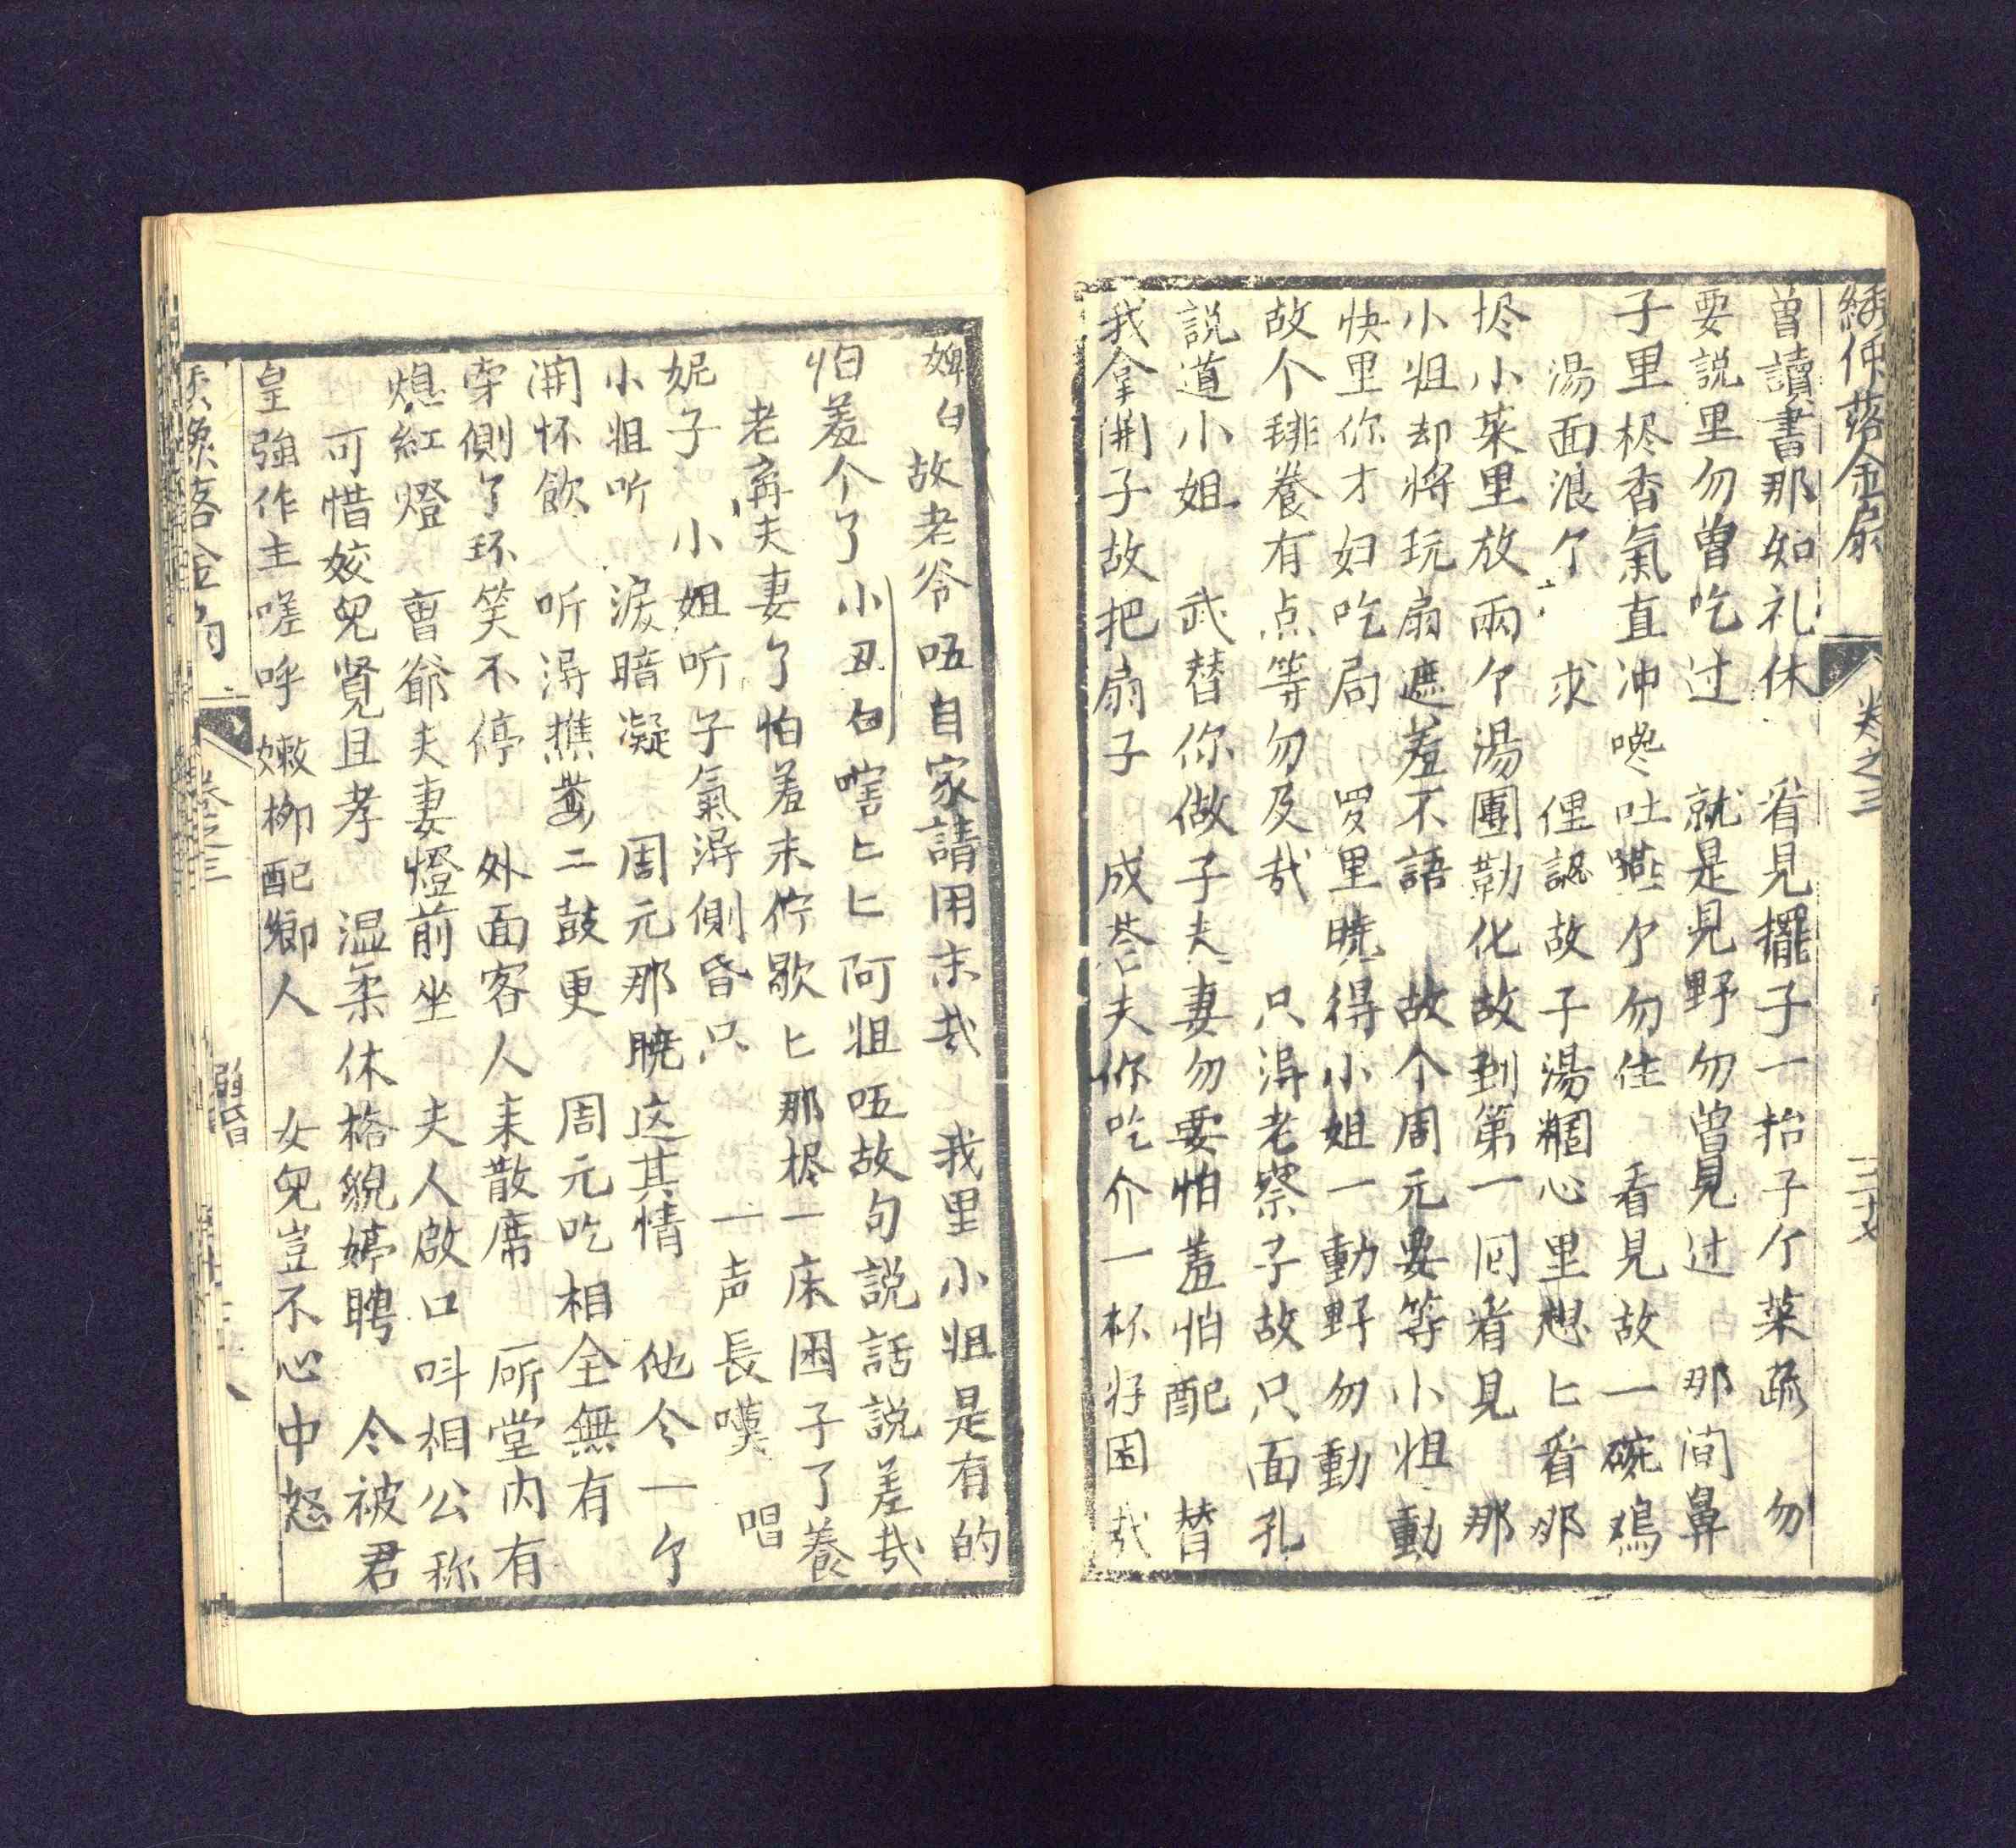 綉像落金扇 卷之三 三十七
曾讀書那知礼休 看見擺子一抬子个菜蔬 勿
要説里勿曽吃过 就是見野勿曽見过 那间鼻
子里栚香氣直冲 吐嚥个勿住 看見故一碗鳮
湯面浪个 求 俚認故子湯糰心里想匕看那
小菜里放兩个湯團勒化故到第一囘看見 那
小姐却將玩扇遮羞不語 故个周元要等小姐動
快里你才妇吃局 罗里曉得小姐一動野勿動
故个排養有点等勿及哉 只淂老察子故只面孔
説道小姐 武替你做子夫妻勿要怕羞怕配 替
我拿開子故把扇子 成荅夫你吃介一杯好困哉
婢白故老爷唔自家請用末哉 我里小姐是有的
怕羞个了小丑白嘻匕匕阿姐唔故句説話説差哉
老夫妻了怕羞末佇歇匕那栚一床困子了養
妮子 小姐听子氣淂側昏只 一声長嘆 唱
小姐听 淚暗凝 周元那曉这其情 他令一个
開怀飲 听淂樵䓤二鼓更 周元吃相全無有
穿側了环笑不停 外面客人未散席 所堂内有
熄紅燈 曹爺夫妻燈前坐 夫人啟口呌相公称
可惜姣皃贤且孝 温柔休格貌婷聘 今被君
皇強作主嗟呼 嫩柳配鄉人 女皃豈不心中怒
綉像落金扇 卷之三 溺昏 三十八